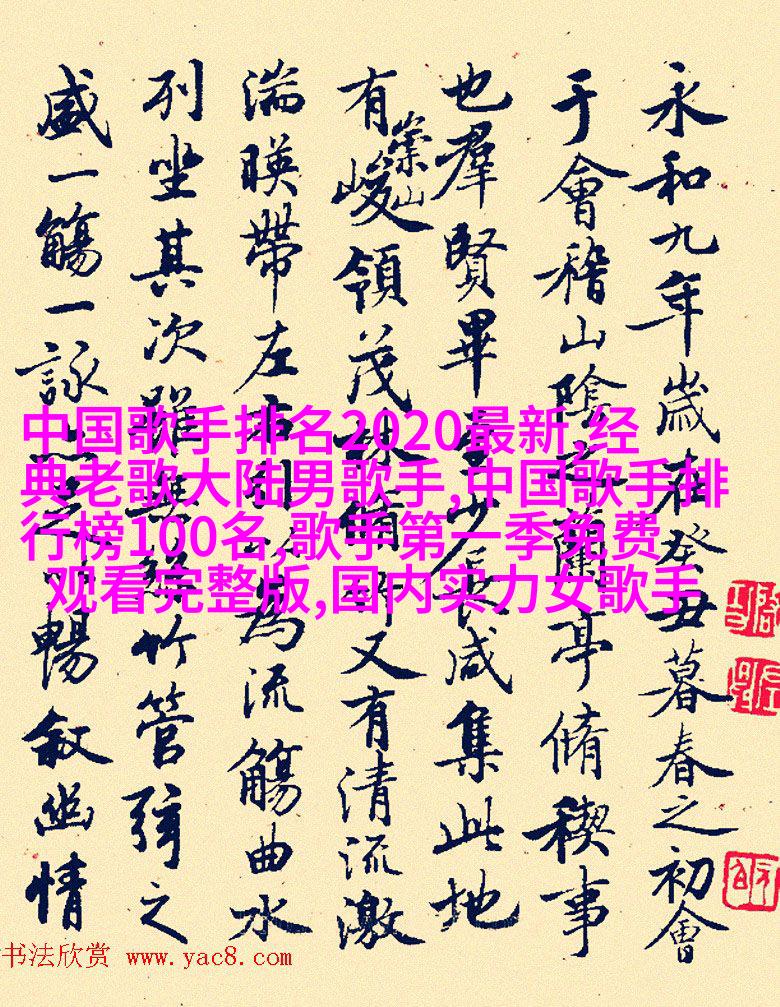 永和九年歲在癸丑暮春之初會
于會稽山陰之蘭亭脩稧事
也羣賢畢至少長咸集此地
有崇山峻領茂林脩竹又有清流激
湍暎帶左右引以為流觴曲水
列坐其次雖無絲竹管弦之
盛一觴一詠亦足以暢敘幽情
中国歌手排名2020最新,经
典老歌大陆男歌手,中国歌手排
行榜100名,歌手第一季免费
观看完整版,国内实力女歌手
书法欣赏 www.yac8.com